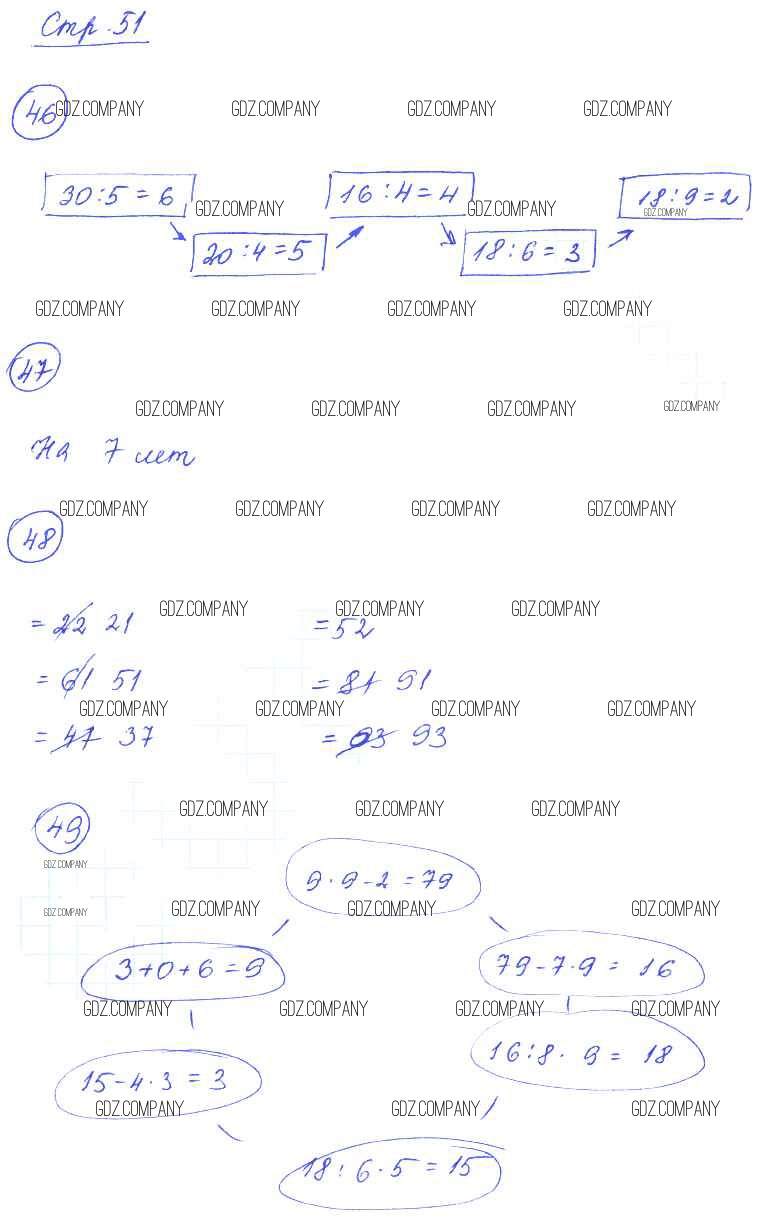 Стр. 51
46 GDZ.COMPANY GDZ.COMPANY GDZ.COMPANY GDZ.COMPANY
30:5=6 16:4=4 18:9=2
GDZ.COMPANY GDZ.COMPANY GDZ.COMPANY
20:4=5 18:6=3
GDZ.COMPANY GDZ.COMPANY GDZ.COMPANY GDZ.COMPANY
47
GDZ.COMPANY GDZ.COMPANY GDZ.COMPANY GDZ.COMPANY
На 7 лет
GDZ.COMPANY GDZ.COMPANY GDZ.COMPANY GDZ.COMPANY
48
GDZ.COMPANY GDZ.COMPANY GDZ.COMPANY
= 22 21 = 52
= 61 51 = 81 91
GDZ.COMPANY GDZ.COMPANY GDZ.COMPANY GDZ.COMPANY
= 47 37 = 83 93
GDZ.COMPANY GDZ.COMPANY GDZ.COMPANY
49
GDZ.COMPANY
9·9-2=79
GDZ.COMPANY GDZ.COMPANY GDZ.COMPANY GDZ.COMPANY
3+0+6=9 79-7·9= 16
GDZ.COMPANY GDZ.COMPANY GDZ.COMPANY GDZ.COMPANY
16:8· 9= 18
15-4·3=3
GDZ.COMPANY GDZ.COMPANY GDZ.COMPANY
18:6·5=15